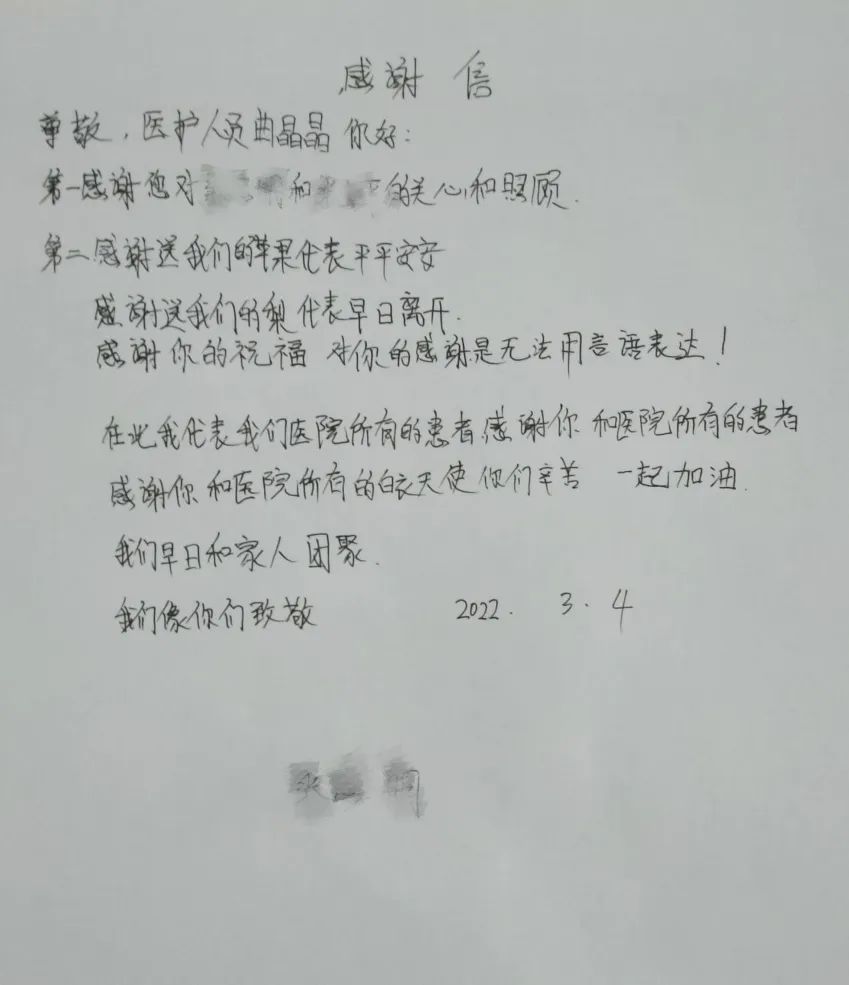 感谢信
尊敬，医护人员曲晶晶你好：
第一感谢您对和的关心和照顾.
第二感谢送我们的苹果代表平平安安
感谢送我们的梨代表早日离开.
感谢你的祝福 对你的感谢是无法用言语表达！
在此我代表我们医院所有的患者感谢你 和医院所有的患者
感谢你和医院所有的白衣天使你们辛苦 一起加油.
我们早日和家人团聚.
我们像你们致敬 2022. 3. 4